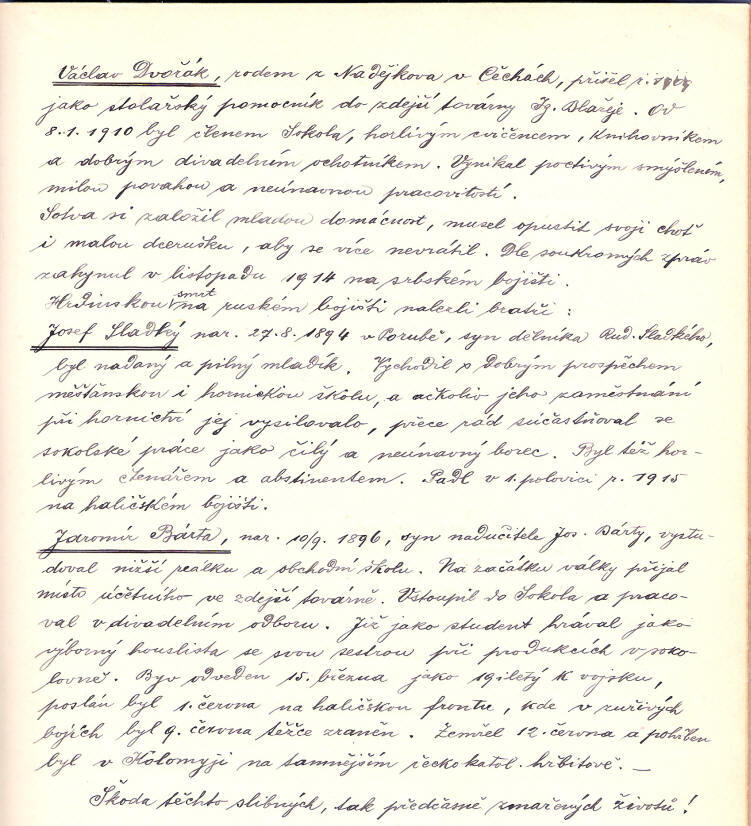 Václav Dvořák, rodem z Nadějkova v Čěchách, přišel r.
jako stolařský pomocník do zdejší továrny Ig. Blažeje. Od
8.1.1910 byl členem Sokola, horlivým cvičencem, knihovníkem
a dobrým divadelním ochotníkem. Vynikal poctivým smýšlením,
milou povahou a neúnavnou pracovitostí.
Sotva si založil mladou domácnost, musel opustit svoji choť
i malou dcerušku, aby se více nevrátil. Dle soukromých zpráv
zahynul v listopadu 1914 na srbském bojišti.
Hrdinskou smrt na ruském bojišti nalezli bratři:
Josef Sladký nar. 27.8.1894 v Porubě, syn dělníka Rud. Sladkého,
byl nadaný a pilný mladík. Vychodil s dobrým prospěchem
měšťanskou i hornickou školu, a ačkoliv jeho zaměstnání
při hornictví jej vysilovalo, přece rád súčastňoval se
sokolské práce jako čilý a neúnavný borec. Byl též hor-
livým čtenářem a abstinentem. Padl v 1. polovici r. 1915
na haličském bojišti.
Jaromír Bárta, nar. 10/9. 1896, syn nadučitele Jos. Bárty, vystu-
doval nižší reálku a obchodní školu. Na začátku války přijal
místo účetního ve zdejší továrně. Vstoupil do Sokola a praco-
val v divadelním odboru. Již jako student hrával jako
výborný houslista se svou sestrou při produkcích v soko-
lovně. Byv odveden 15. března jako 19letý k vojsku,
poslán byl 1. června na haličskou frontu, kde v zuřivých
bojích byl 9. června těžce zraněn. Zemřel 12. června a pohřben
byl v Kolomyji na tamnějším řeckokatol. hrbitově. —
Škoda těchto slibných, tak předčasně zmařených životů!